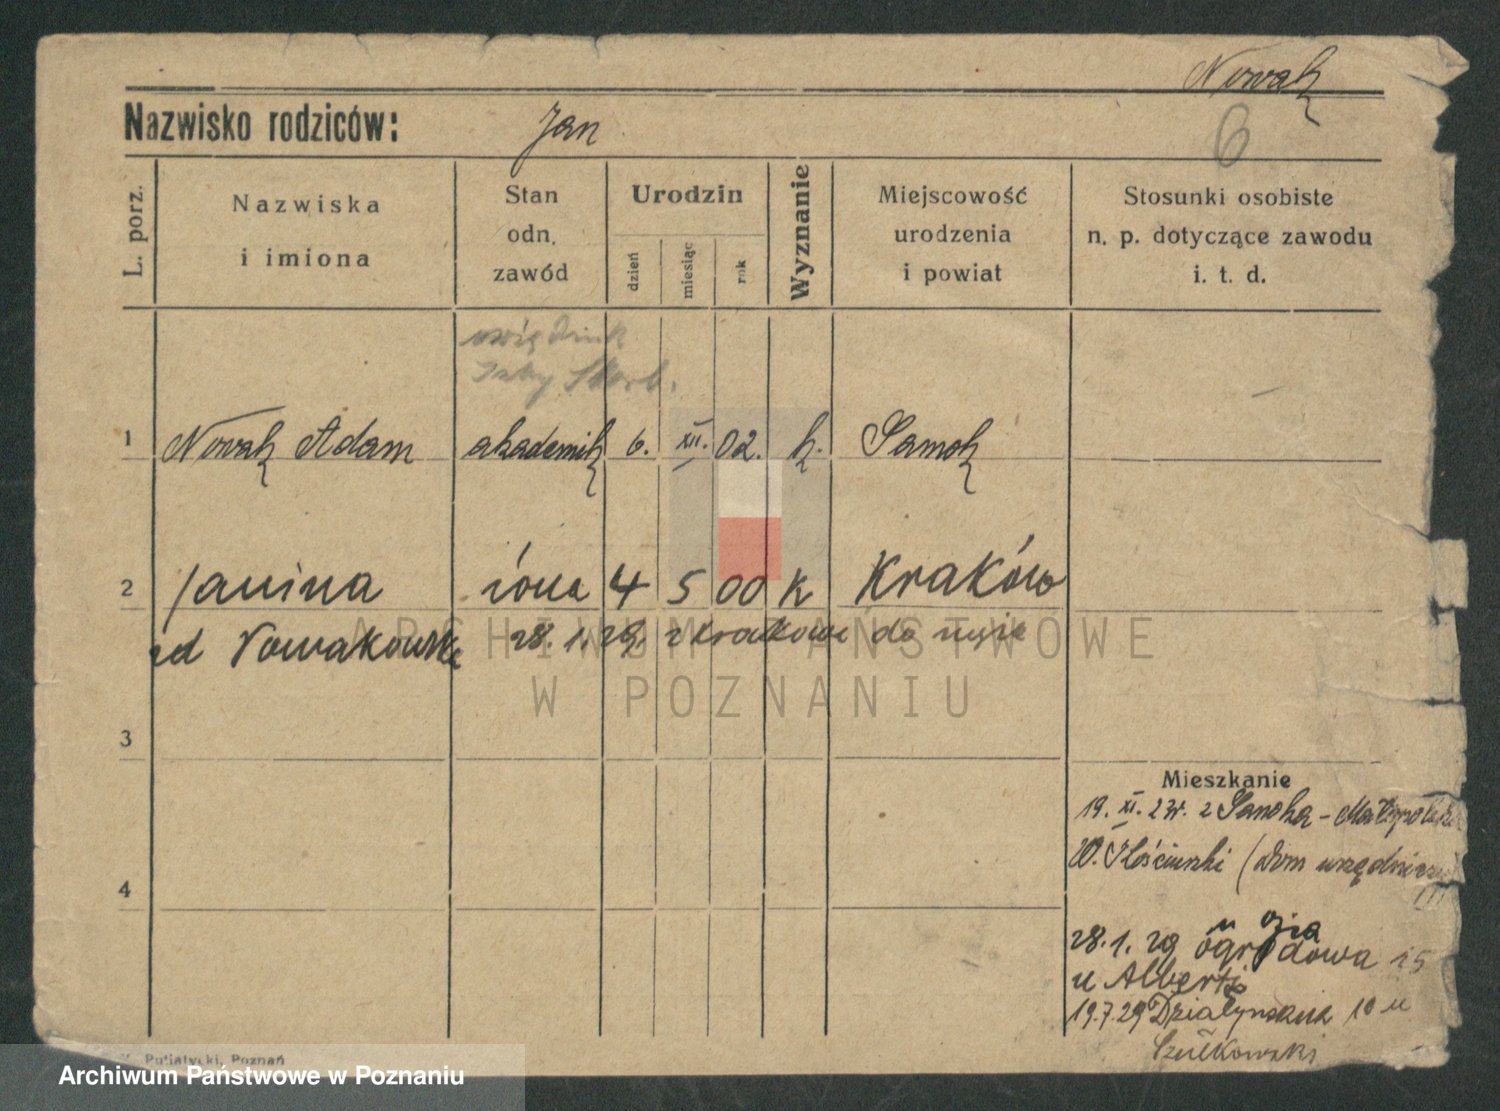 Nowak
Nazwisko rodziców: Jan
6
L. porz.
Nazwiska
i imiona
Stan
odn.
zawód
Urodzin
dzień
miesiąc
rok
Wyznanie
Miejscowość
urodzenia
i powiat
Stosunki osobiste
n. p. dotyczące zawodu
i. t. d.
Izby Skarb.
1 Nowak Adam akademik 6. XII. 02. k. Sanok
2 Janina żona 4 5 00 k Kraków
zd Nowakowska 28. 1. 29. z Krakowa do męża
ARCHIWUM PAŃSTWOWE
W POZNANIU
3
Mieszkanie
19. XI. 23r. z Sanoka - Małopolska
4
28. 1. 29 Ogrodowa 15
u Alberti
19.7.29 Działyńskich 10 u
Szułkowski
Putiatycki, Poznań
Archiwum Państwowe w Poznaniu